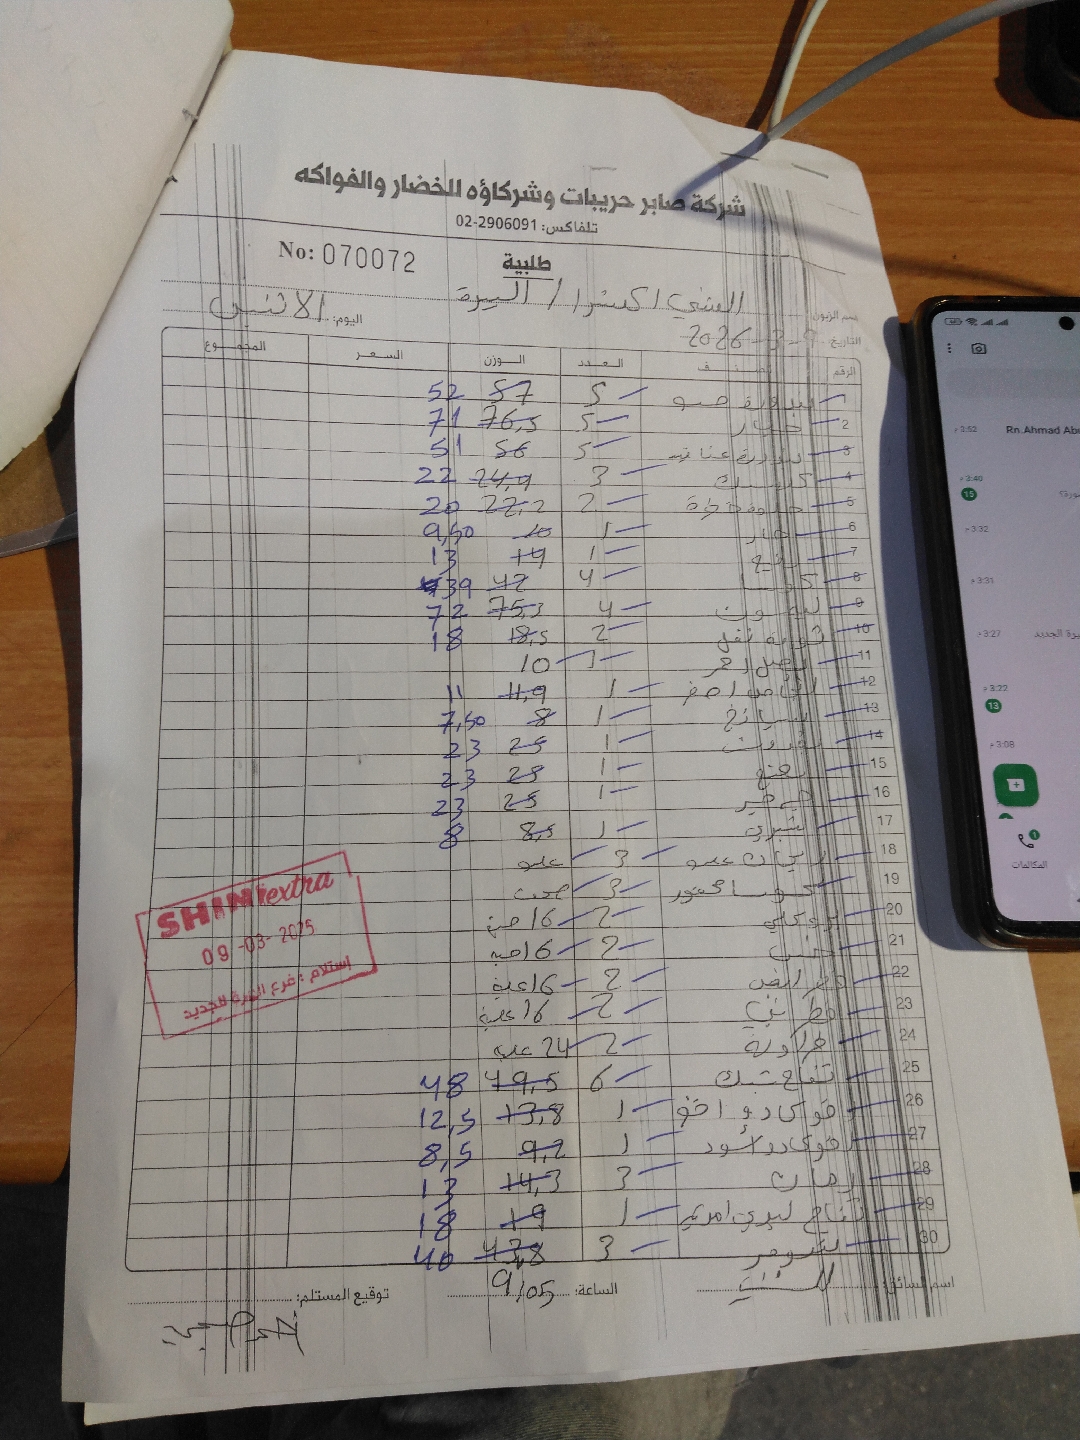 شركة صابر حريبات وشركاؤه للخضار والفواكه
تلفاكس: 02-2906091
No: 070072
طلبية
اسم الزبون: الشني اكسترا / البيرة
اليوم: الاثنين
التاريخ: 9-3-2026
الرقم الصنف العدد الوزن السعر المجموع
1 بندورة 5 57 52
2 خيار 5 76,5 71
3 بندورة عناقيد 5 56 51
4 3 24,9 22
5 2 22,2 20
6 1 10 9,50
7 1 14 13
8 4 42 39
9 ليمون 4 75,3 72
10 2 18,5 18
11 بصل احمر 1 10
12 اصفر 1 11,9 11
13 سبانخ 1 8 7,50
14 1 25 23
15 نعنع 1 25 23
16 1 25 23
17 1 8,5 8
18 3 علب
19 كوسا محفور 3 صحن
20 بروكلي 2 16
21 خس 2 16 حبة
22 فطر ابيض 2 16 علبة
23 فطر بني 2 16 علبة
24 فراولة 2 24 علبة
25 تفاح 6 49,5 48
26 افوكادو اخضر 1 13,8 12,5
27 افوكادو اسود 1 9,2 8,5
28 رمان 3 14,3 13
29 تفاح 1 19 18
30 3 43,8 40
اسم السائق:
الساعة: 9/05
توقيع المستلم:
SHINI extra
09-03-2025
استلام : فرع البيرة الجديد
3:52 م
Rn.Ahmad Abu
3:40 م
15
3:32 م
3:31 م
3:27 م
يرة الجديد
3:22 م
13
3:08 م
1
المكالمات